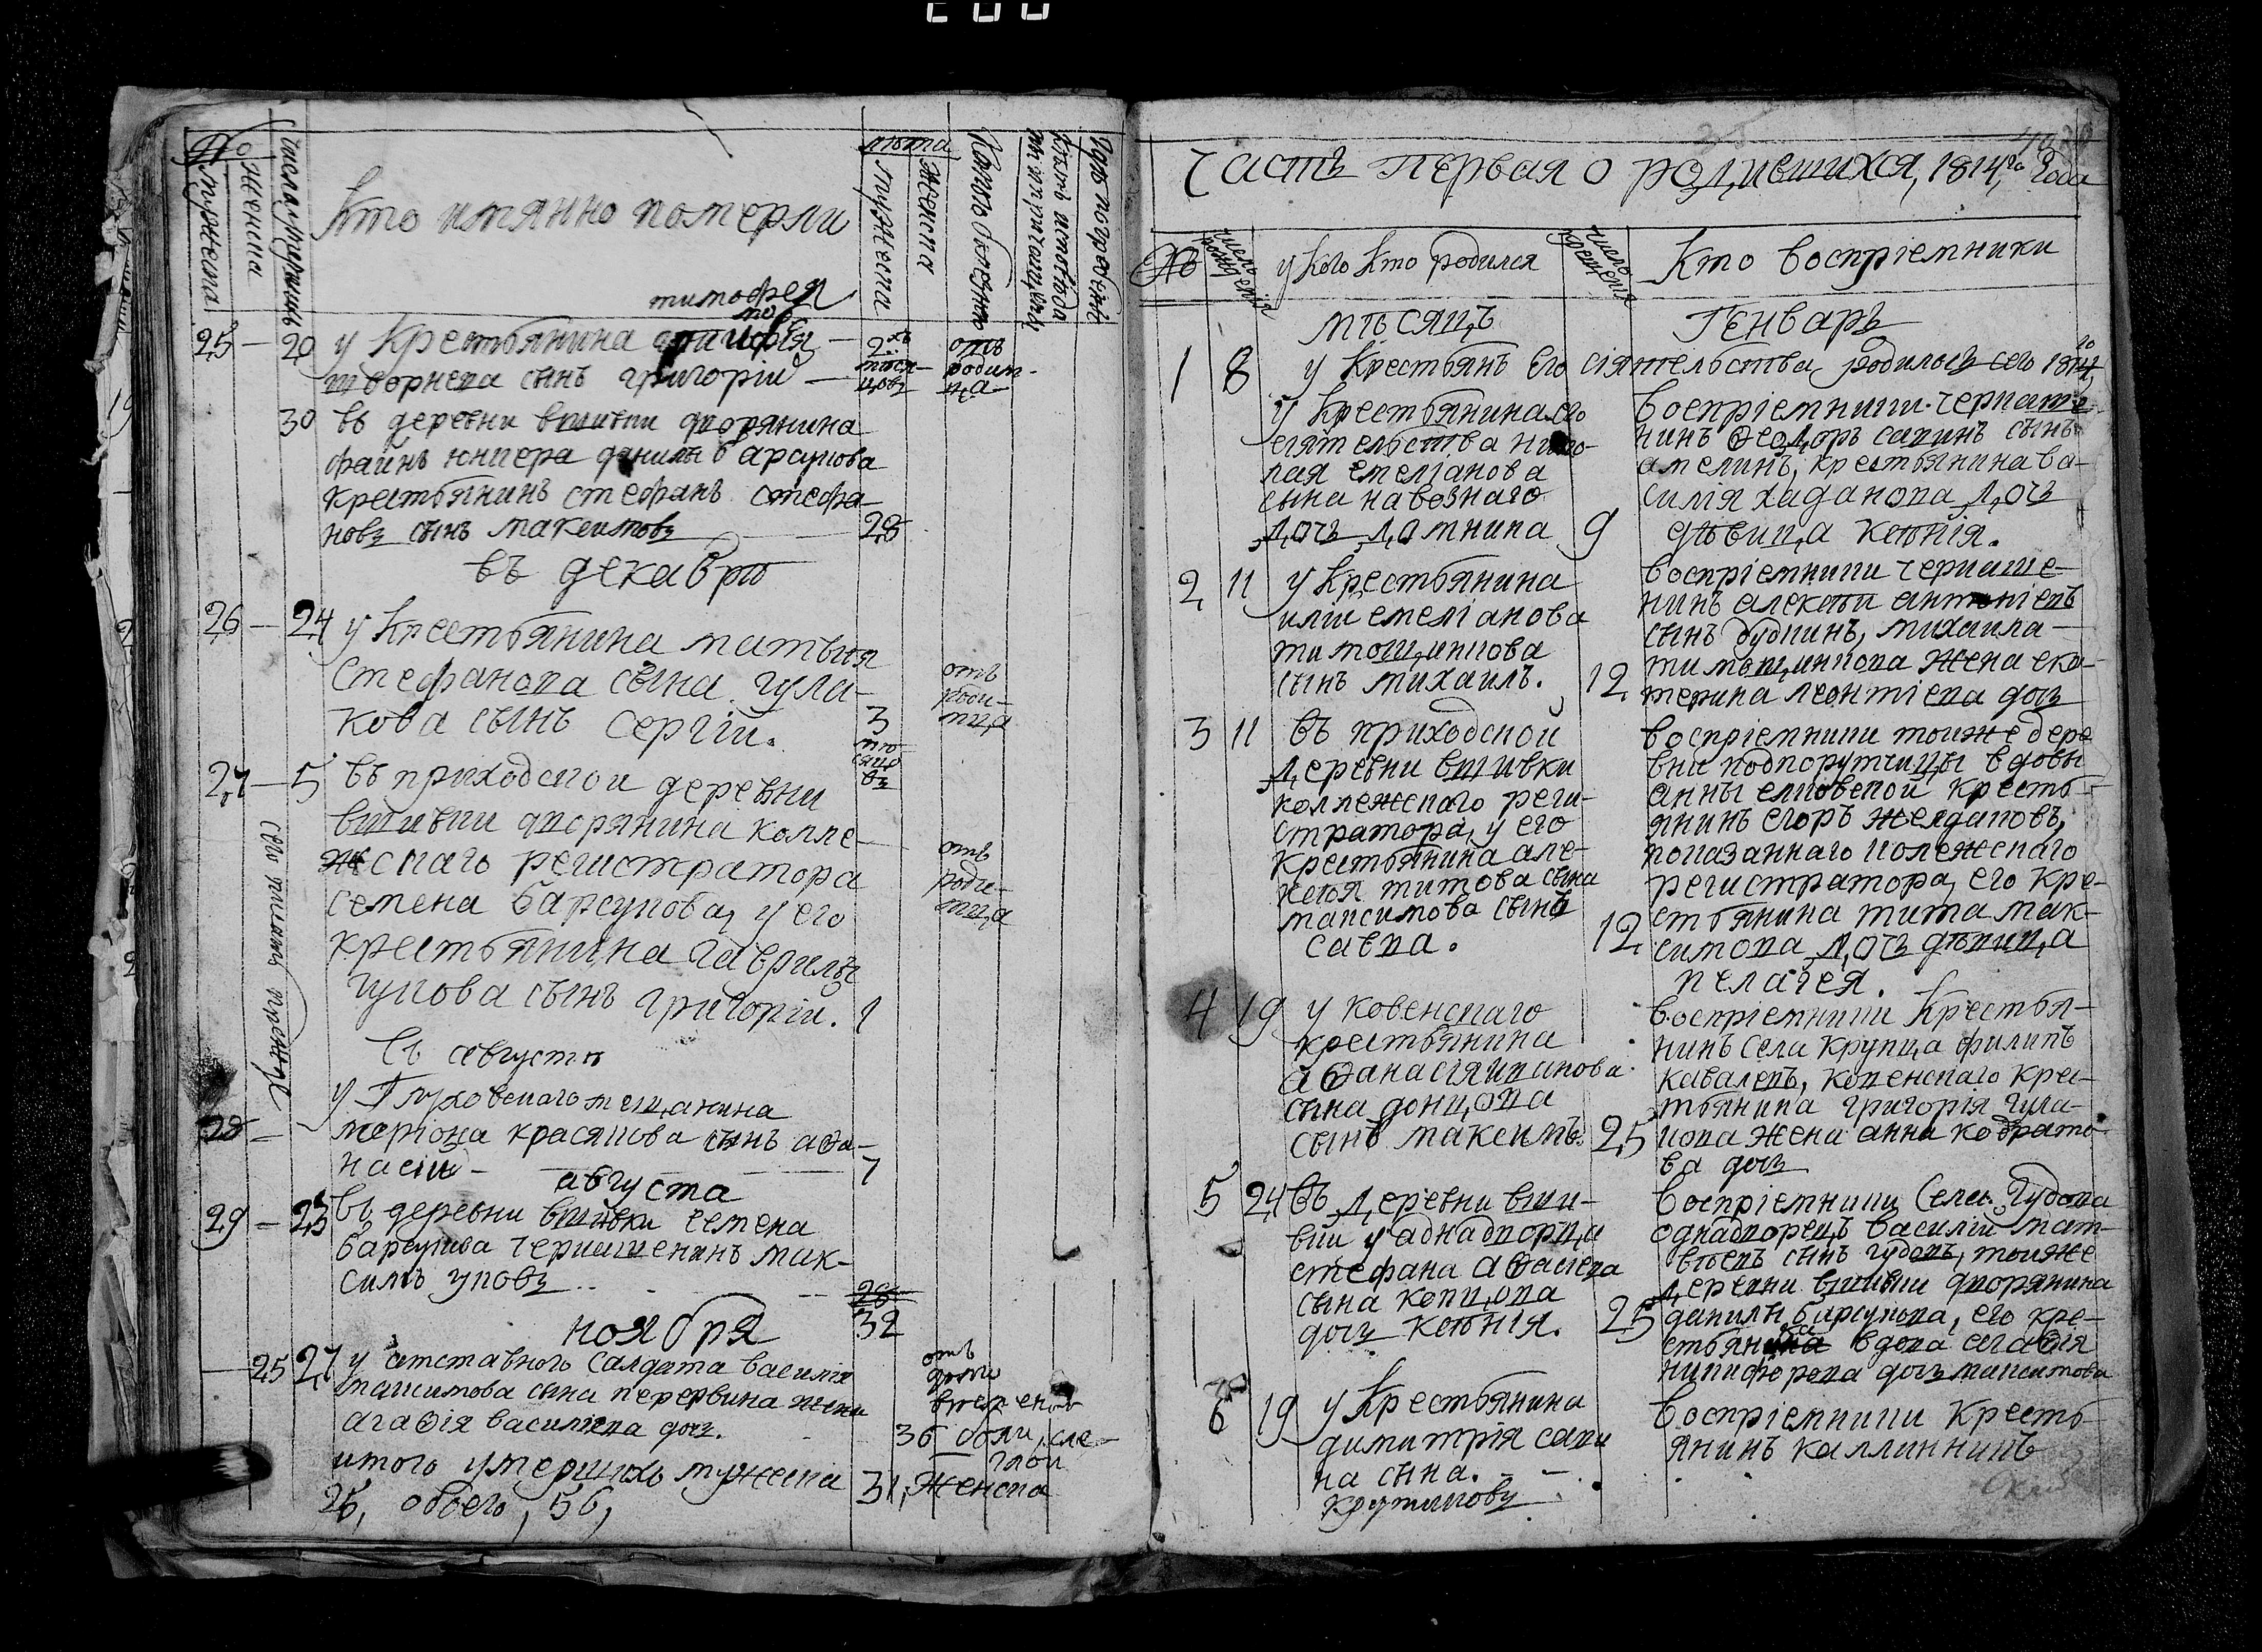 №
мужеска
женска
число умершихъ
Кто имянно померли
лѣта
мужеска
женска
Какою болезнию
Кѣмъ исповѣданы
и приобщены
Гдѣ погребены
тимофея
25 — 20 у крестьянина
творнева сынъ григорій — 2хъ меся-цовъ отъ родим-ца
30 въ деревни вшивки дворянина
юнкера данилы барсукова
крестьянинъ стефанъ стефа-
новъ сынъ максимовъ 28
въ декабрѣ
26 — 24 у крестьянина матвия
стефанова сына гула-
кова сынъ сергій. 3 месяцовъ отъ роди-мца
27 — 5 въ приходской деревни
вшивки дворянина колле-
жскаго регистратора
семена барсукова, у его
крестьянина гаврилы
гукова сынъ григорій. 1 отъ роди-мца
въ августѣ
у Глуховскаго мещанина
28 — меріона красякова сынъ афа-
насій — 7
августа
29 — 23 въ деревни вшивки семена
барсукова черкашенинъ мак-
симъ уковъ 28
32
ноября
25 27 у атставного салдата василія
максимова сына перервина жена
агафія василіева дочь. 36
итого умершихъ мужеска 31, женска
25, обоего, 56,
Часть первая о родившихся, 1814го года
№
число рождения
у кого кто родился
число крещения
Кто воспріемники
мѣсяцъ Генварь
1 8 у крестьянъ его сіятельства родилось сего 1814го
у крестьянина его
сіятельства нико-
лая емеліанова
сына навознаго
дочь домника 9
воспріемники черкаше-
нинъ ѳедоръ савинъ сынъ
амелинъ, крестьянина ва-
силія хаданова дочь
дѣвица ксѣнія.
2 11 у крестьянина
иліи емеліанова
тимошинкова
сынъ михаилъ. 12
воспріемники черкаше-
нинъ алексѣй антоніевъ
сынъ будкинъ, михаила
тимошинкова жена ека-
терина леонтіева дочь
3 11 въ приходской
деревни вшивки
коллежскаго реги-
стратора, у его
крестьянина але-
ксѣя титова сына
максимова сынъ
савва. 12
воспріемники тойже дере
вни подпорутчицы вдовы
анны елковской кресть-
янинъ егоръ желдаковъ,
показаннаго колежскаго
регистратора, его кре-
стьянина тита мак-
симова дочь дѣвица
пелагея.
4 19 у ковенскаго
крестьянина
афанасія
сына донцова
сынъ максимъ 25
воспріемники крестья-
нинъ села крупца филипъ
ковалевъ, ковенскаго крес-
тьянина григорія гула-
кова жена анна кодрато-
ва дочь
5 24 въ деревни вши-
вки у аднадворца
стефана афасіева
сына копцова
дочь ксѣнія. 25
воспріемники села гудова
однадворецъ василій мат-
вѣевъ сынъ гудовъ, тойже
деревни вшивки дворянина
данилы барсукова, его кре-
вдова агафія
никифорова дочь максимова
6 19 у крестьянина
димитрія сави
на сына.
воспріемники кресть-
янинъ каллинникъ